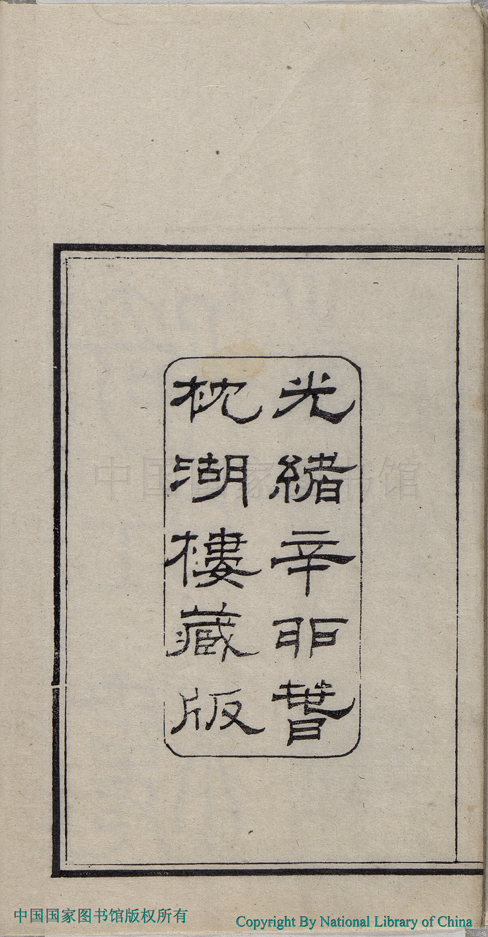 光緒辛卯
枕湖樓藏版
中国国家图书馆
中国国家图书馆版权所有
Copyright By National Library of China